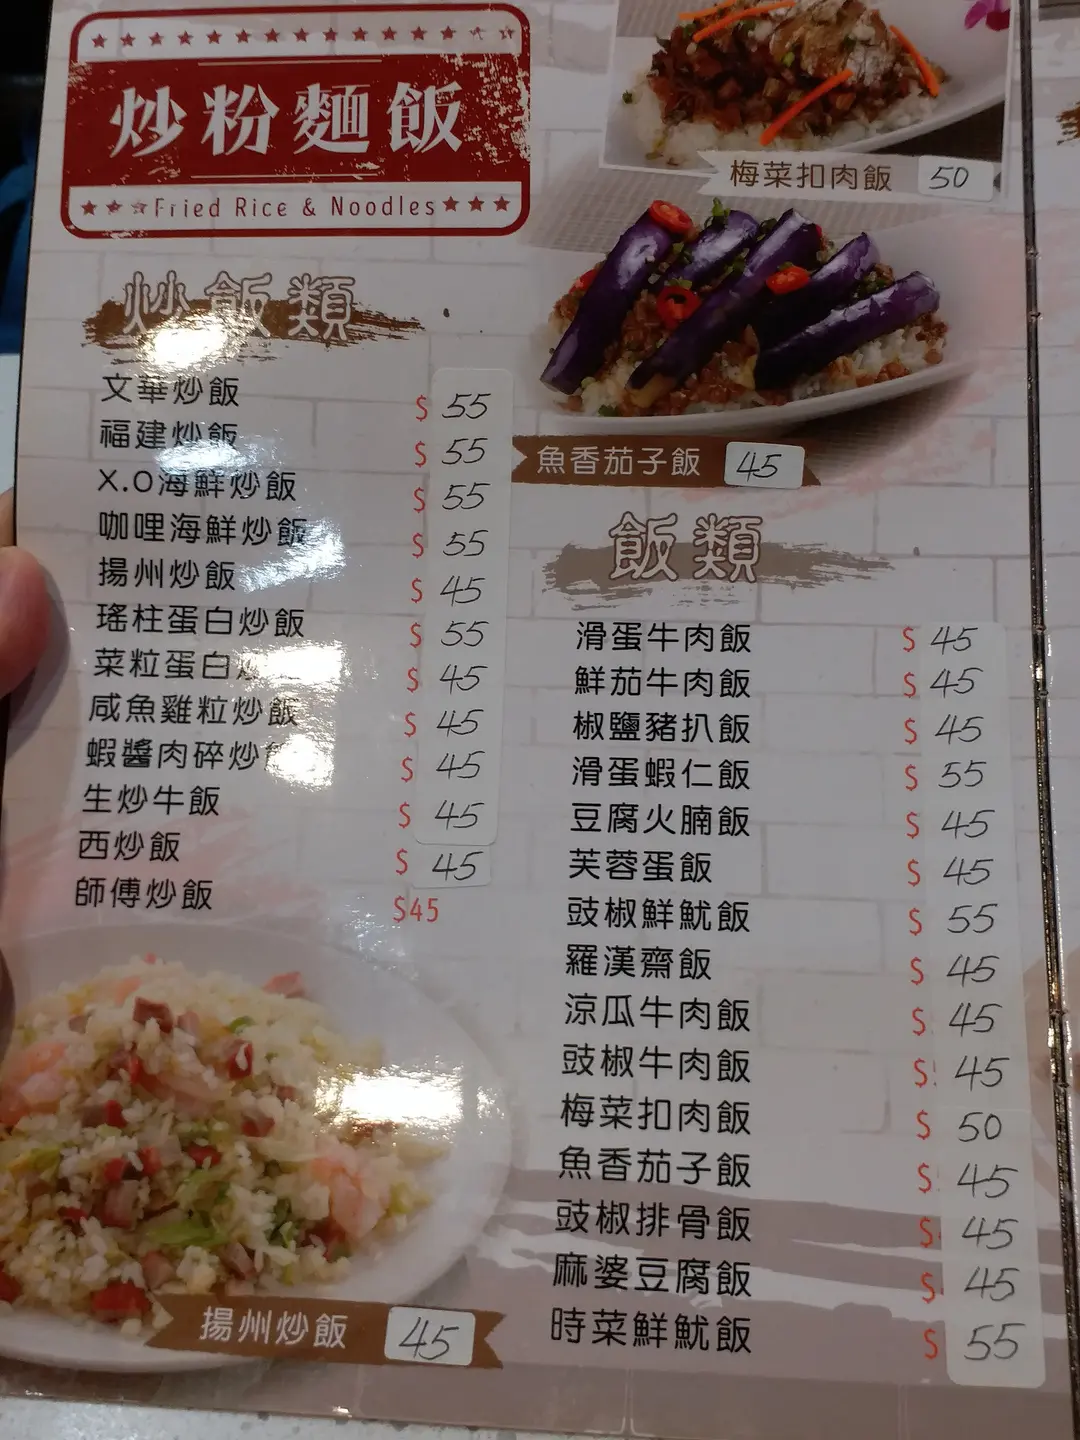 炒粉麵飯
Fried Rice & Noodles
梅菜扣肉飯 50
魚香茄子飯 45
炒飯類
文華炒飯 $ 55
福建炒飯 $ 55
X.O海鮮炒飯 $ 55
咖哩海鮮炒飯 $ 55
揚州炒飯 $ 45
瑤柱蛋白炒飯 $ 55
菜粒蛋白炒 $ 45
咸魚雞粒炒飯 $ 45
蝦醬肉碎炒飯 $ 45
生炒牛飯 $ 45
西炒飯 $ 45
師傅炒飯 $45
揚州炒飯 45
飯類
滑蛋牛肉飯 $ 45
鮮茄牛肉飯 $ 45
椒鹽豬扒飯 $ 45
滑蛋蝦仁飯 $ 55
豆腐火腩飯 $ 45
芙蓉蛋飯 $ 45
豉椒鮮魷飯 $ 55
羅漢齋飯 $ 45
涼瓜牛肉飯 $ 45
豉椒牛肉飯 $ 45
梅菜扣肉飯 $ 50
魚香茄子飯 $ 45
豉椒排骨飯 $ 45
麻婆豆腐飯 $ 45
時菜鮮魷飯 $ 55